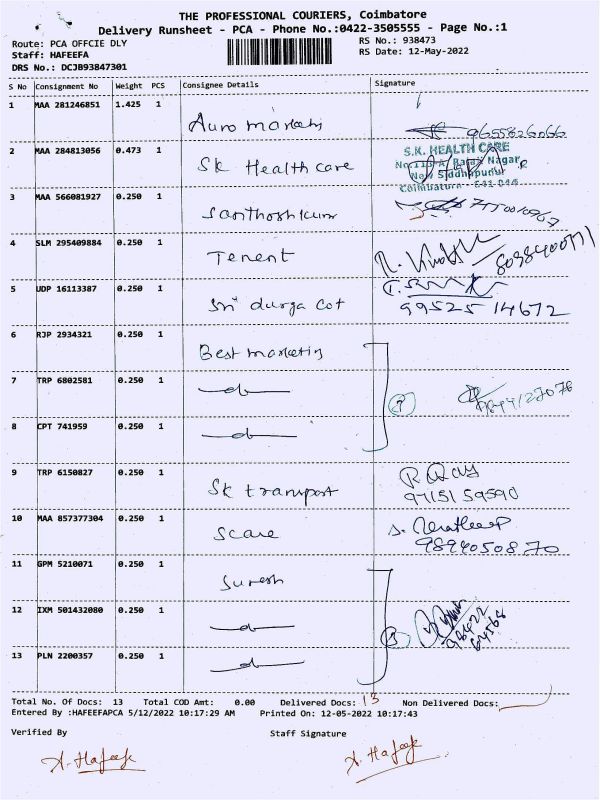 THE PROFESSIONAL COURIERS, Coimbatore
Delivery Runsheet - PCA - Phone No.:0422-3505555 - Page No.:1
Route: PCA OFFCIE DLY RS No.: 938473
Staff: HAFEEFA RS Date: 12-May-2022
DRS No.: DCJB93847301
S No Consignment No Weight PCS Consignee Details Signature
1 MAA 281246851 1.425 1
Auro markets 9655826066
2 MAA 284813056 0.473 1 S.K. HEALTH CARE
Sk Health care No.113-A, Rajaji Nagar,
New Siddhapudur
Coimbatore - 641 044
3 MAA 566081927 0.250 1
Santhosh kumr
4 SLM 295409884 0.250 1
Tenent 8098400771
5 UDP 16113387 0.250 1
Sri durga cot 99525 14672
6 RJP 2934321 0.250 1
Best marketing
7 TRP 6802581 0.250 1
—do—
8 CPT 741959 0.250 1
—do—
9 TRP 6150827 0.250 1
Sk transport 97151 59590
10 MAA 857377304 0.250 1
Scare 9894050870
11 GPM 5210071 0.250 1
Suresh
12 IXM 501432080 0.250 1
—do— 3 98422 64568
13 PLN 2200357 0.250 1
—do—
Total No. Of Docs: 13 Total COD Amt: 0.00 Delivered Docs: 13 Non Delivered Docs:
Entered By :HAFEEFAPCA 5/12/2022 10:17:29 AM Printed On: 12-05-2022 10:17:43
Verified By Staff Signature
A. Hafeefa A. Hafeefa